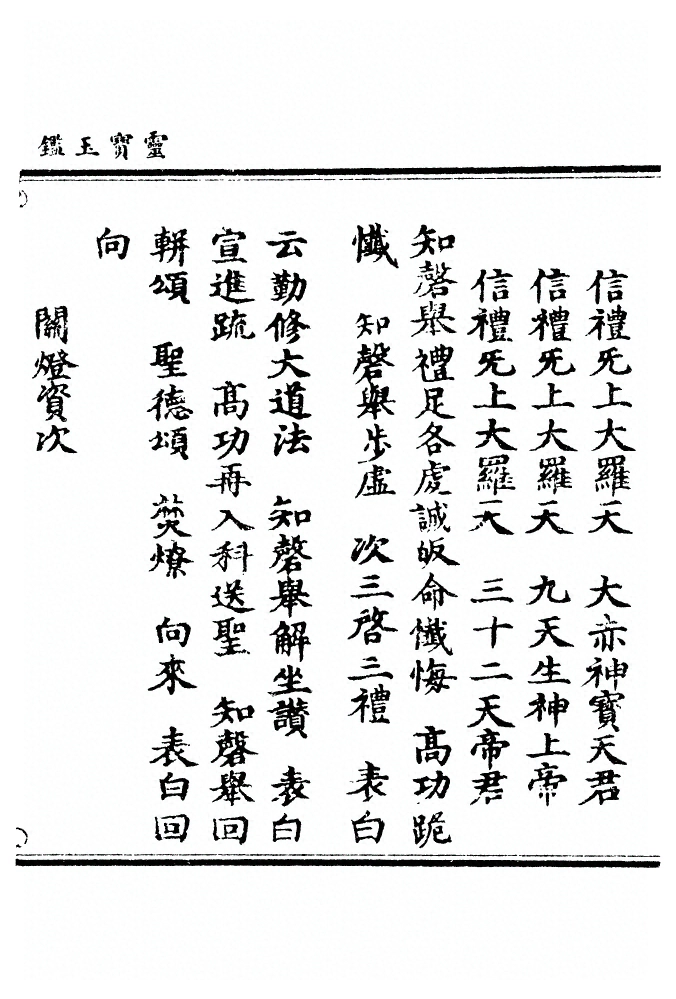 靈寳玉鑑
信禮旡上大羅天　大赤神寶天君
信禮旡上大羅天　九天生神上帝
信禮旡上大羅天　三十二天帝君
知磬舉禮足各虔誠皈命懺悔　髙功跪
懺　知磬舉步虛　次三啓三禮　表白
云勤修大道法　知磬舉解坐讃　表白
宣進䟽　髙功再入科送聖　知磬舉回
軿頌　聖德頌　焚燎　向來　表白回
向
關燈資次